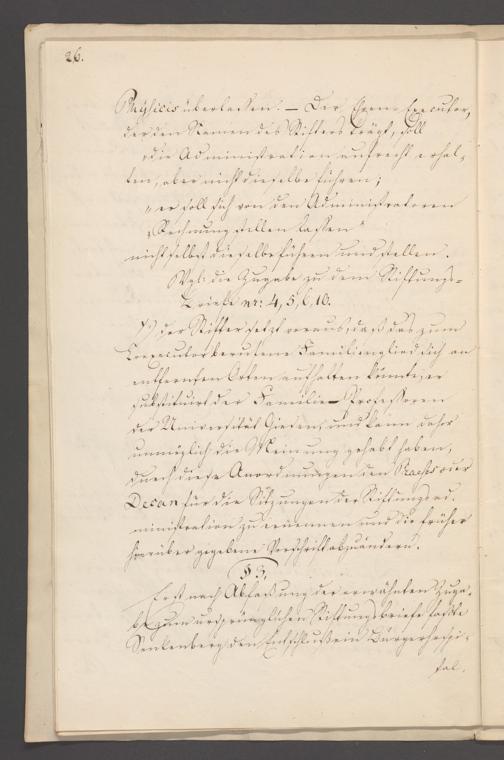 26.
Physicis überlassen. — Der Exem-Executor,
der den Namen des Stifters trägt, soll
„die Administration aufrecht erhal-
ten, aber nicht dieselbe führen;
„er soll sich von den Administratoren
„Rechnung stellen lassen“
nicht selbst dieselbe führen und stellen.
Vgl: die Zugabe zu dem Stiftungs-
briefe nr: 4, 5, 6, 10.
der Stifter setzt voraus, daß das zum
Coexecutor berufene Familienglied sich an
entfernten Orten aufhalten könnte, er
substituirt der Familie — Professoren
der Universität Gießen, und kann daher
unmöglich die Meinung gehabt haben,
durch diese Anordnungen den Praeses oder
Decan für die Sitzungen der Stiftungsad-
ministration zu ernennen und die früher
hierüber gegebene Vorschrift abzuändern.
§ 3.
Erst nach Abfaßung der erwähnten Zuga-
be zum ursprünglichen Stiftungsbriefe faßte
Senkenberg den Entschluß ein Bürgerhospi-
tal.